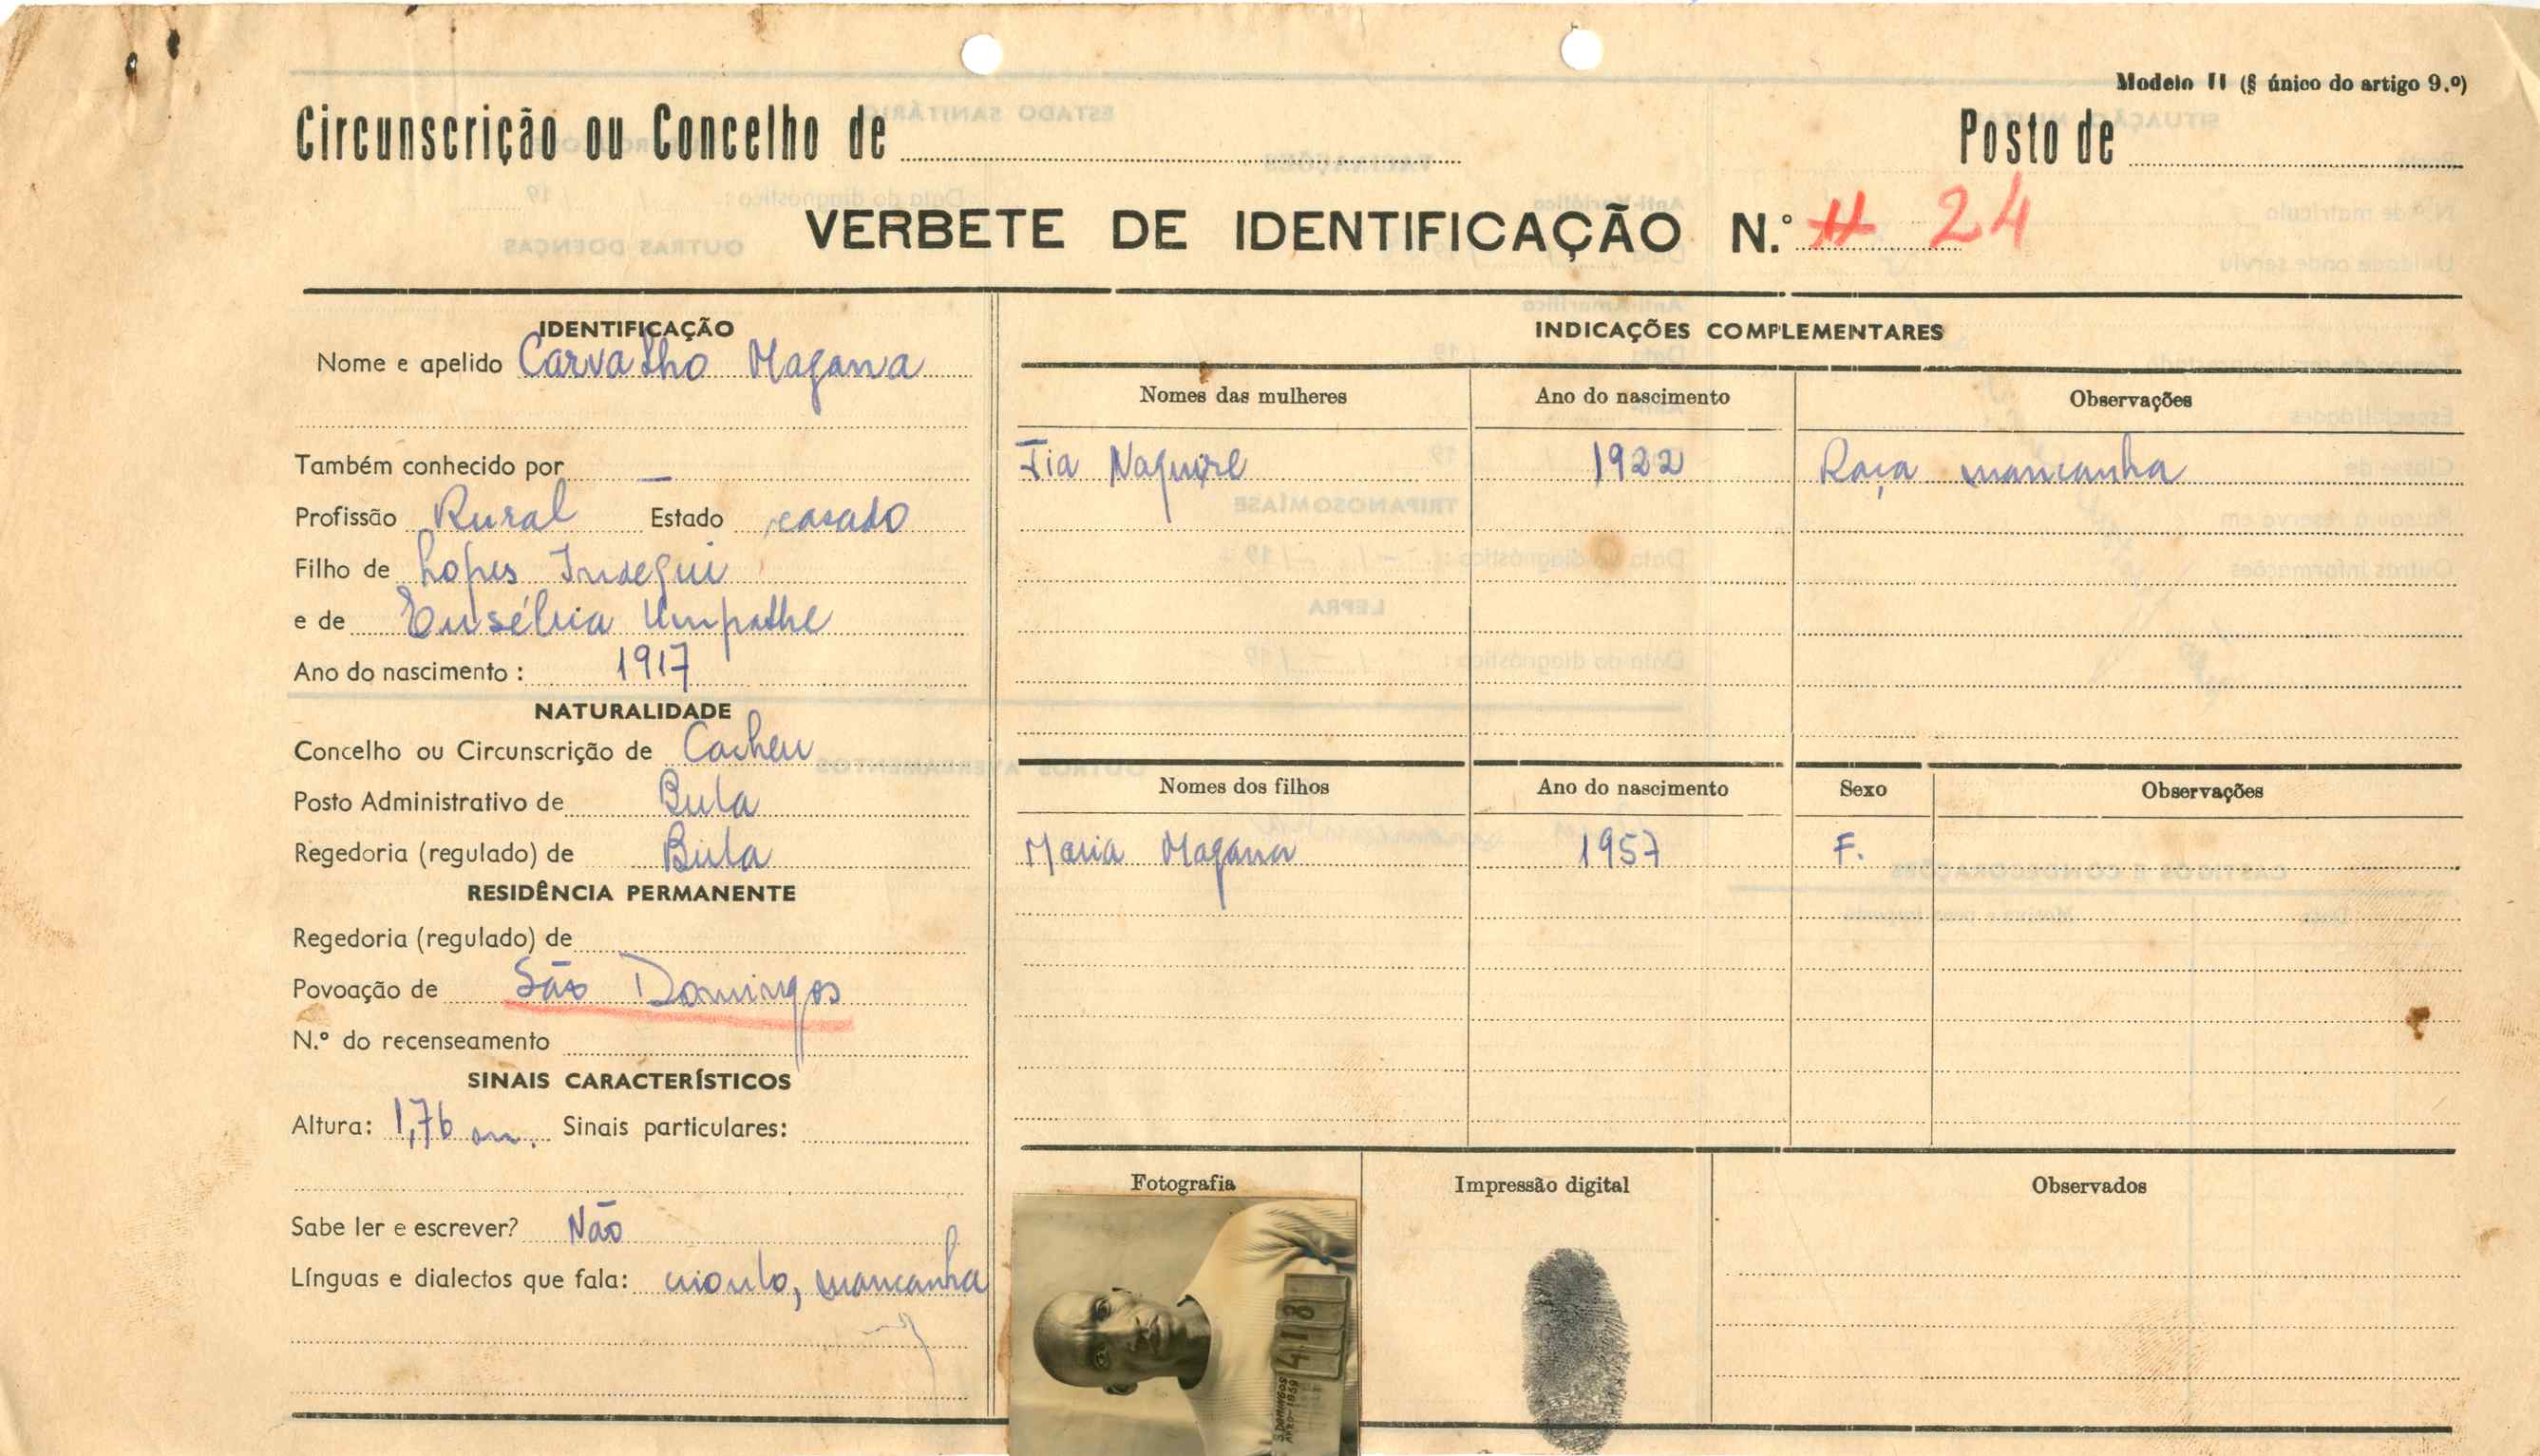 Modelo II (§ único do artigo 9.º)
Circunscrição ou Concelho de
Posto de
VERBETE DE IDENTIFICAÇÃO N.º 24
IDENTIFICAÇÃO
Nome e apelido Carvalho Magana
Também conhecido por —
Profissão Rural Estado casado
Filho de Lopes Indegui
e de Eusébia Umpathe
Ano do nascimento : 1917
NATURALIDADE
Concelho ou Circunscrição de Cacheu
Posto Administrativo de Bula
Regedoria (regulado) de Bula
RESIDÊNCIA PERMANENTE
Regedoria (regulado) de
Povoação de São Domingos
N.º do recenseamento
SINAIS CARACTERÍSTICOS
Altura: 1,76 m. Sinais particulares:
Sabe ler e escrever? Não
Línguas e dialectos que fala: crioulo, mancanha
INDICAÇÕES COMPLEMENTARES
Nomes das mulheres Ano do nascimento Observações
1922 Raça mancanha
Nomes dos filhos Ano do nascimento Sexo Observações
Maria Magana 1957 F.
Fotografia Impressão digital Observados
418
S.DOMINGOS